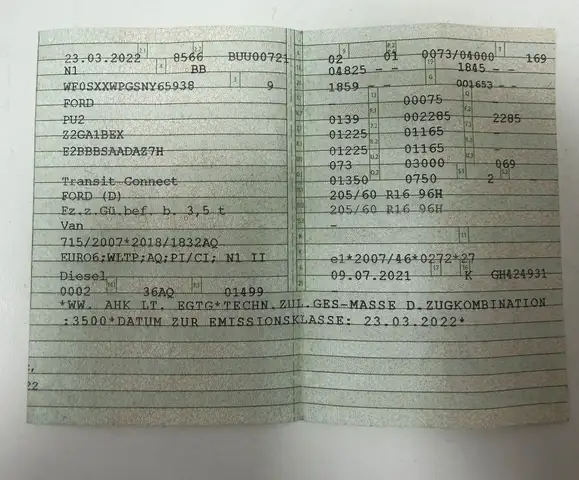 23.03.2022 8566 BUU00721
N1 BB
WF0SXXWPGSNY65938 9
FORD
PU2
Z2GA1BEX
E2BBBSAADAZ7H
Transit Connect
FORD (D)
Fz.z.Gü.bef. b. 3,5 t
Van
715/2007*2018/1832AQ
EURO6;WLTP;AQ;PI/CI; N1 II
Diesel
0002 36AQ 01499
02 01 0073/04000 169
04825 - - 1845 - -
1859 - - 001653 - -
- 00075 -
0139 002285 2285
01225 01165 -
01225 01165 -
073 03000 069
01350 0750 2 -
205/60 R16 96H
205/60 R16 96H
-
-
e1*2007/46*0272*27
09.07.2021 K GH424931
-
*WW. AHK LT. EGTG*TECHN.ZUL.GES-MASSE D.ZUGKOMBINATION
:3500*DATUM ZUR EMISSIONSKLASSE: 23.03.2022*